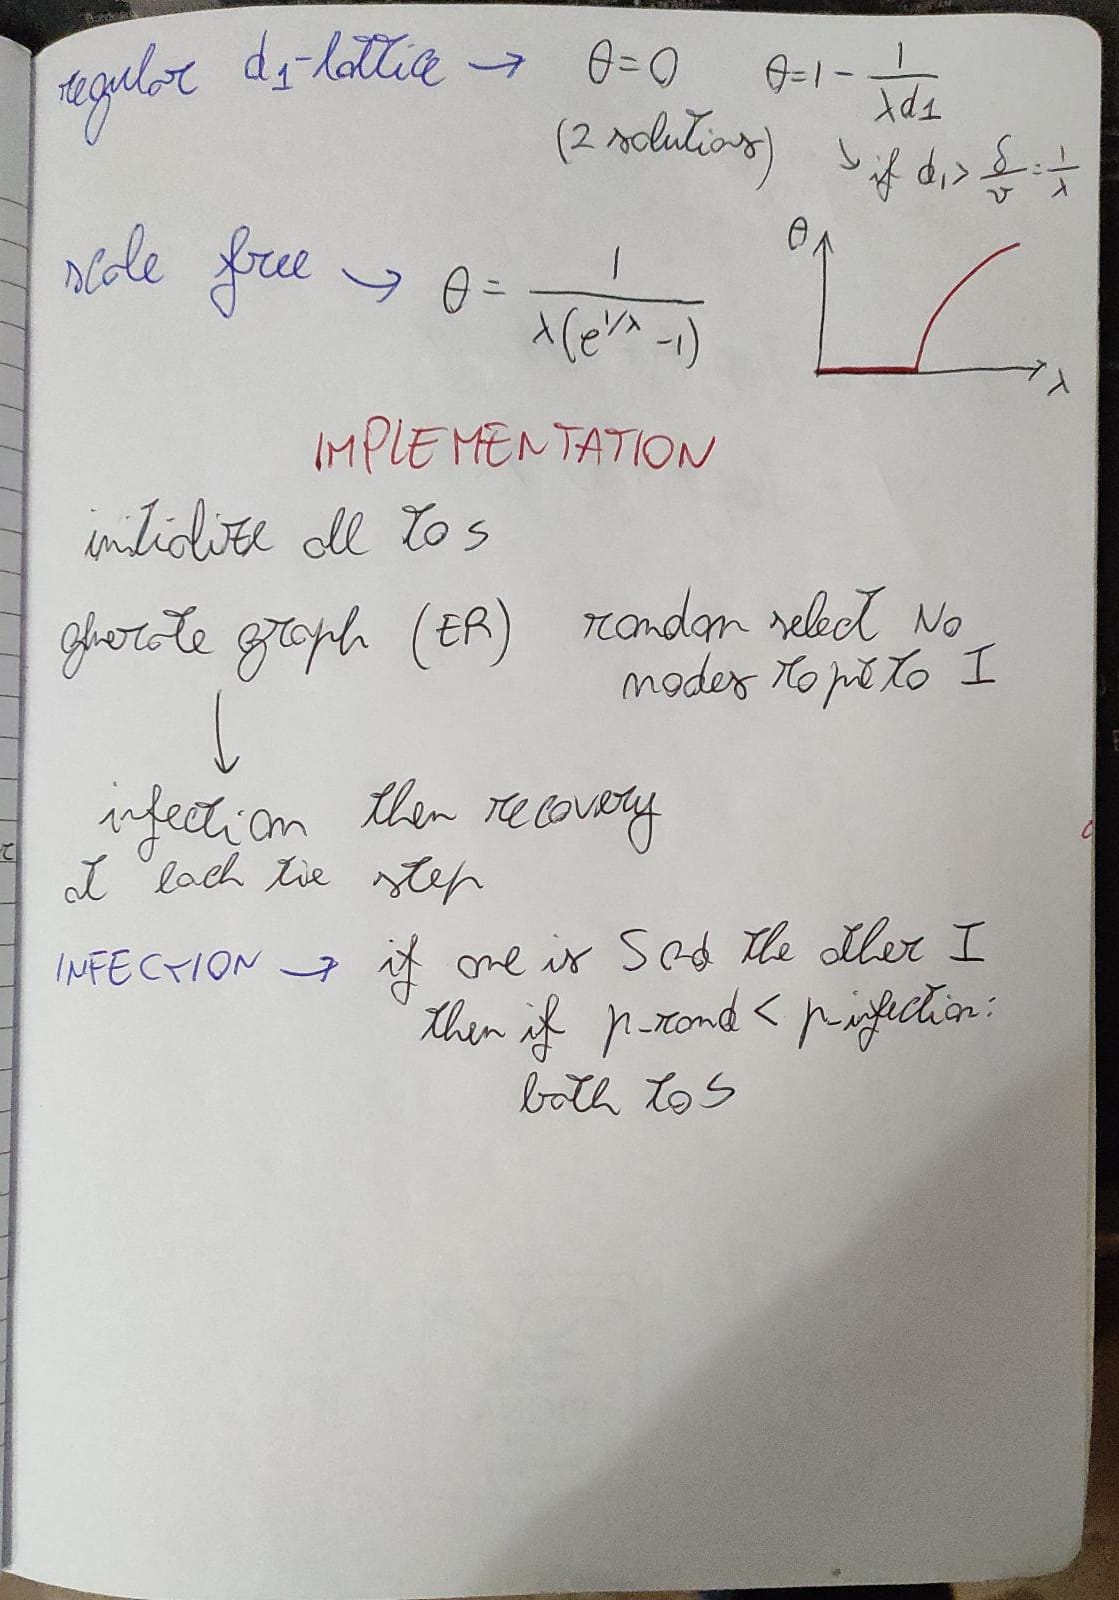 regular d₁-lattice → θ=0 θ=1 - 1/λd1
(2 solutions) ↘ if d₁ > δ/ν = 1/λ
scale free → θ = 1/λ(e^1/λ -1)
θ
λ
IMPLEMENTATION
initialize all to S
generate graph (ER) random select No
nodes to put to I
↓
infection then recovery
at each time step
INFECTION → if one is S and the other I
then if p_rand < p_infection:
both to S